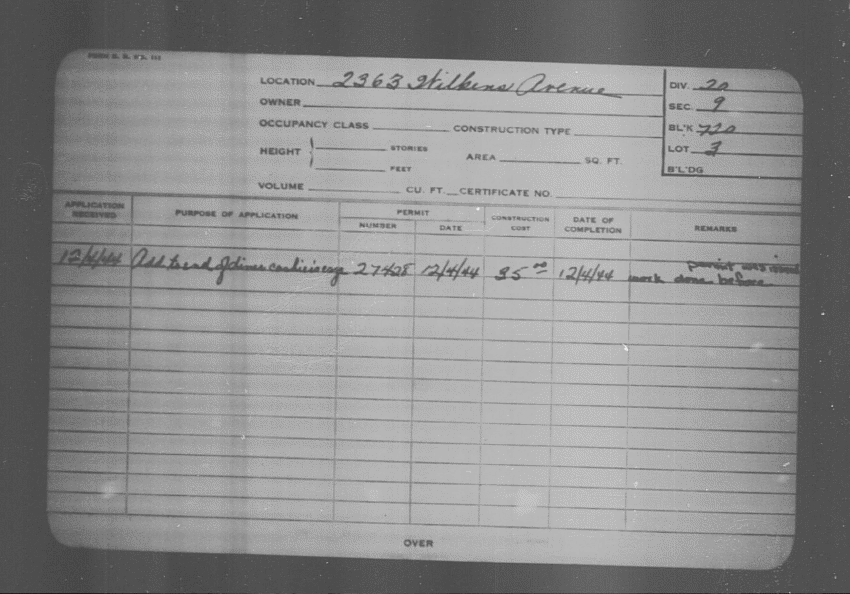 LOCATION 2363 Wilkens Avenue DIV. 20
OWNER SEC. 9
OCCUPANCY CLASS CONSTRUCTION TYPE BL'K 720
HEIGHT STORIES AREA SQ. FT. LOT 3
FEET B'L'DG
VOLUME CU. FT. CERTIFICATE NO.
APPLICATION RECEIVED PURPOSE OF APPLICATION PERMIT CONSTRUCTION COST DATE OF COMPLETION REMARKS
NUMBER DATE
permit was issued
12/4/44 Add to end of 27428 12/4/44 35 00 12/4/44 work done before
OVER